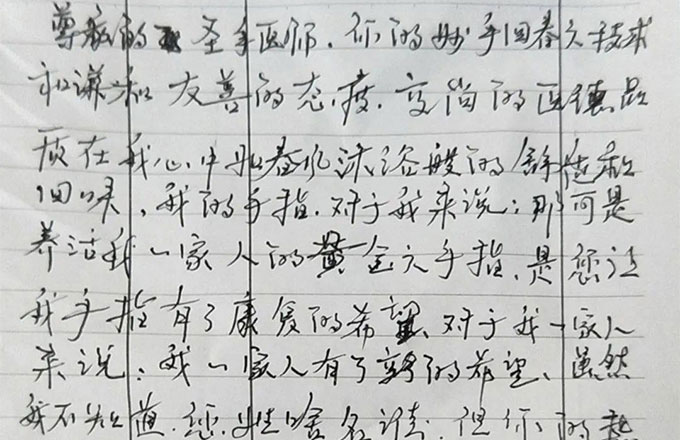 尊敬的圣手医师、你的妙手回春之技术
和谦和友善的态度、高尚的医德品
质在我心中如春风沐浴般的舒适和
回味、我的手指、对于我来说：那可是
养活我一家人的黄金之手指、是您让
我手指有了康复的希望、对于我一家人
来说：我一家人有了新的希望、虽然
我不知道、您姓啥名谁、但你的